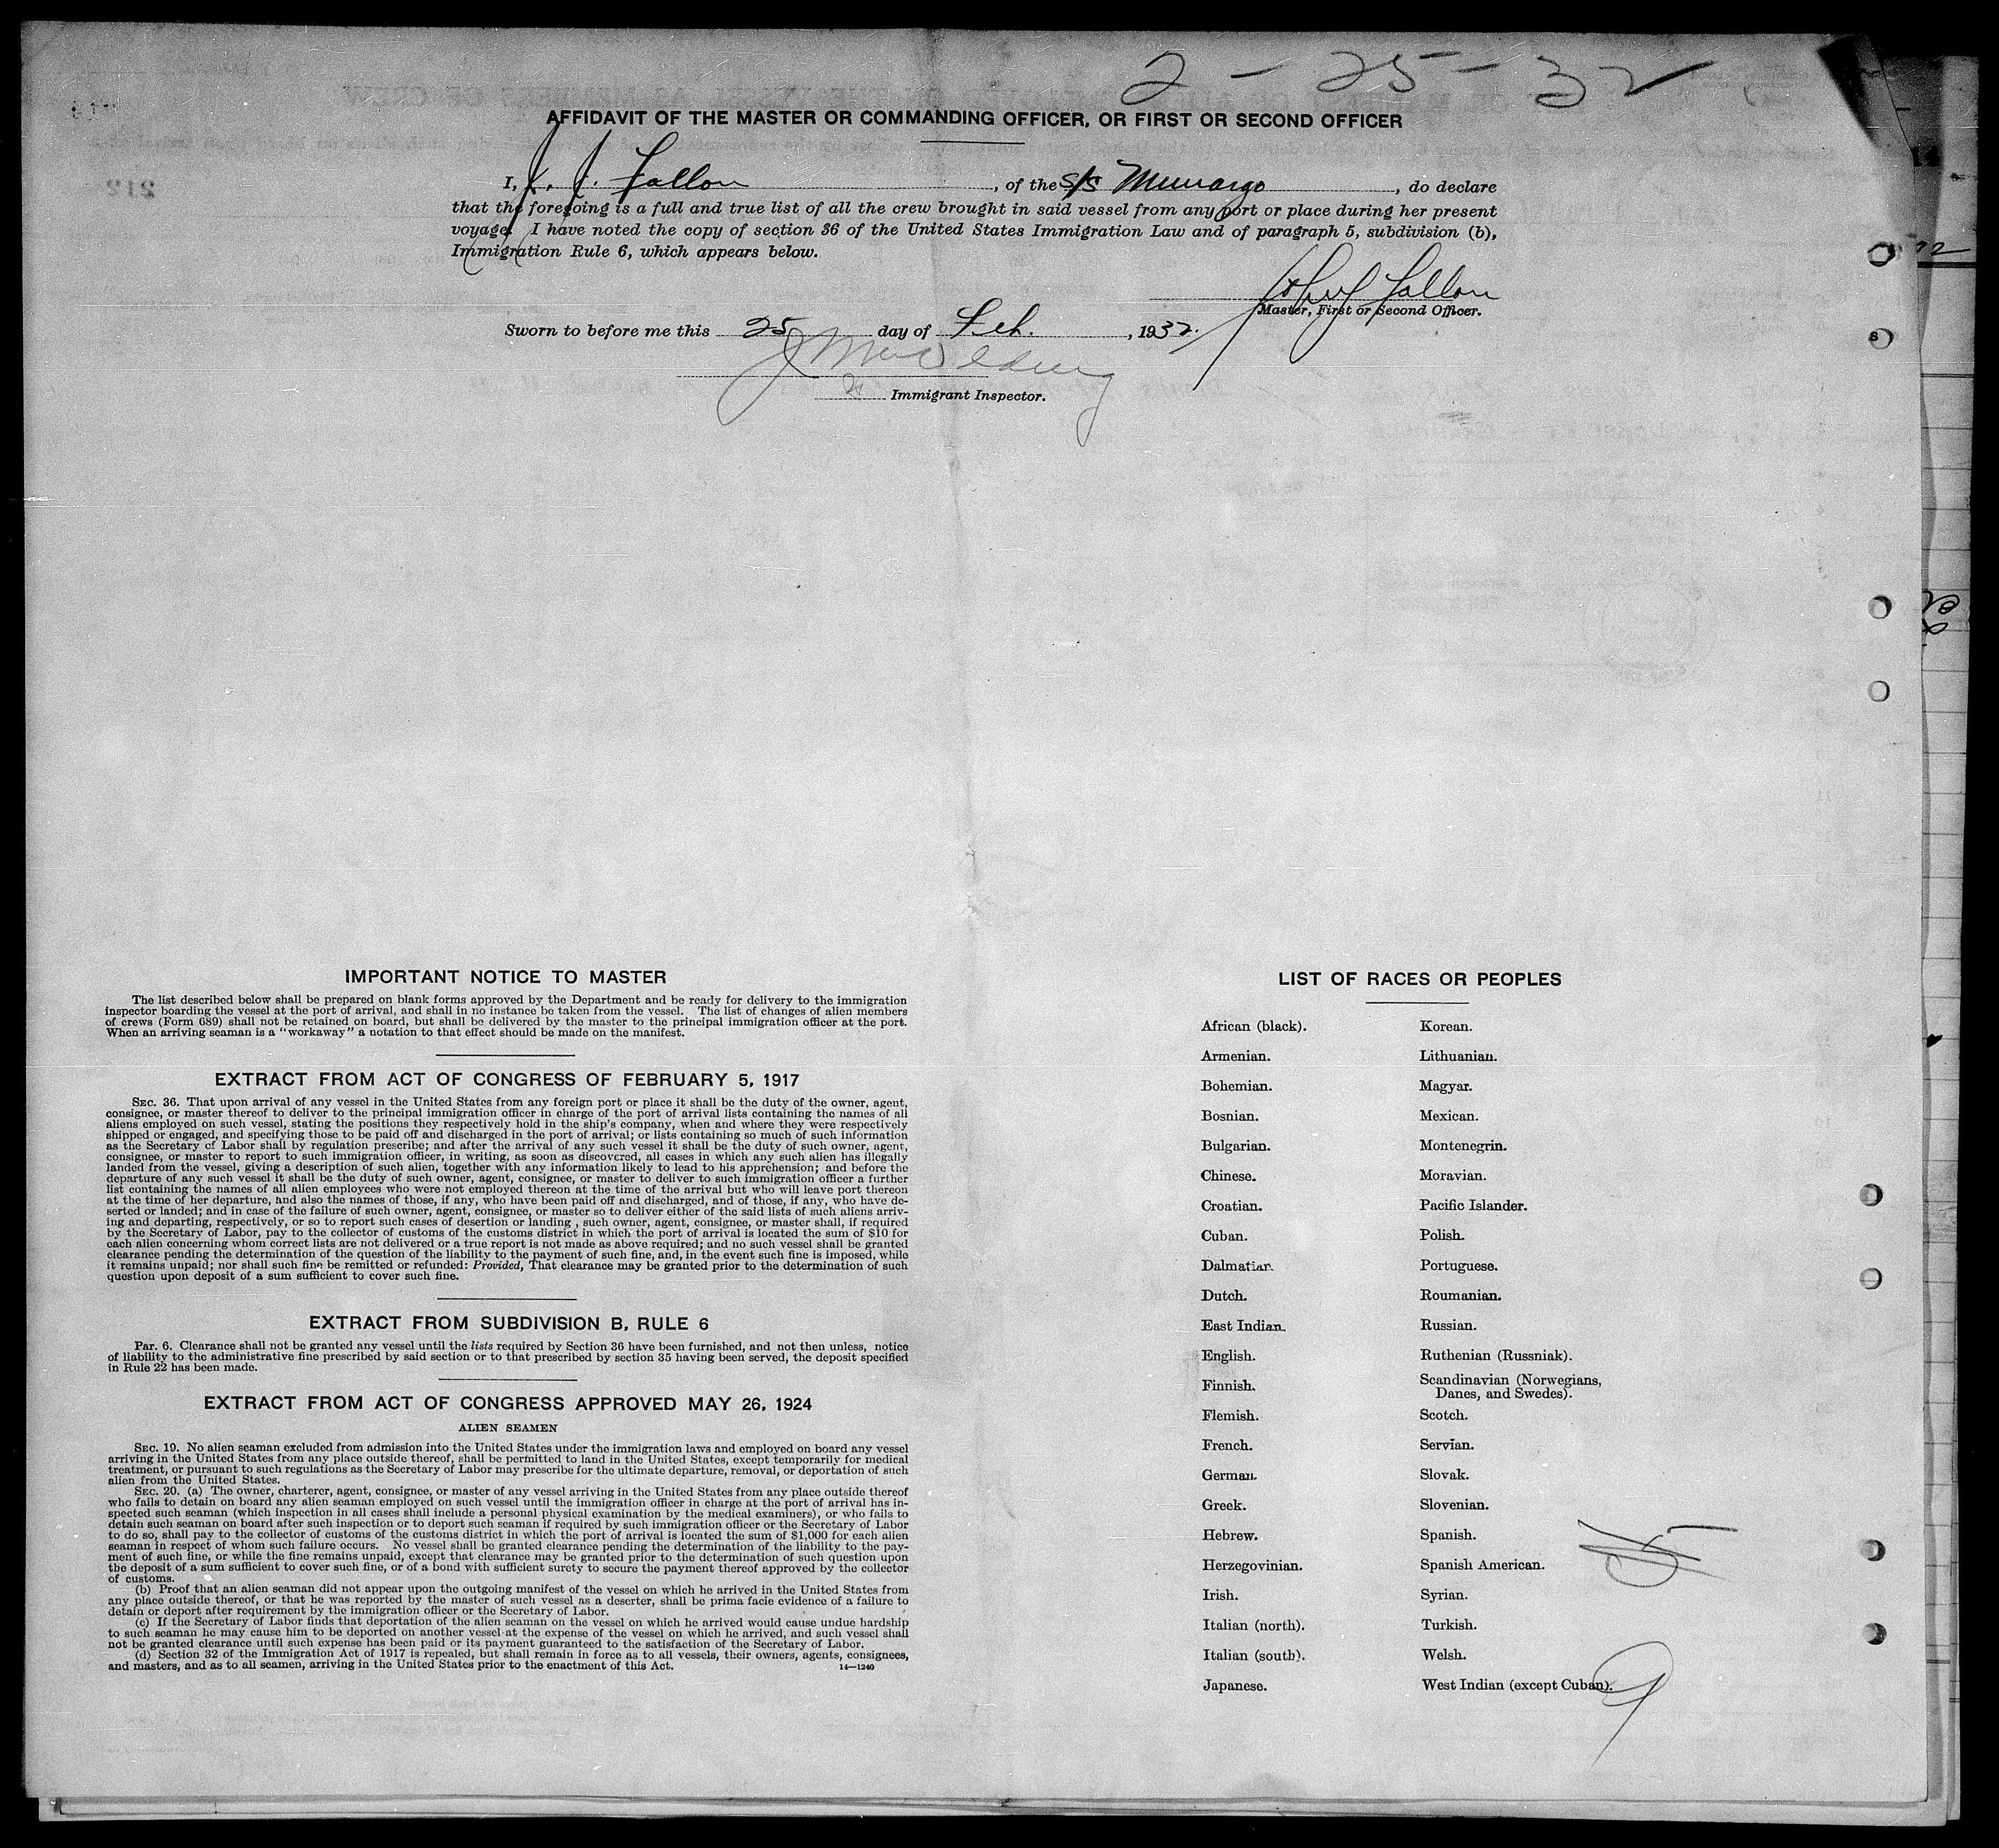 2-25-32
AFFIDAVIT OF THE MASTER OR COMMANDING OFFICER, OR FIRST OR SECOND OFFICER
I, J. J. Fallon, of the S/S Munargo, do declare
that the foregoing is a full and true list of all the crew brought in said vessel from any port or place during her present
voyage. I have noted the copy of section 36 of the United States Immigration Law and of paragraph 5, subdivision (b),
Immigration Rule 6, which appears below.
Fallon
Master, First or Second Officer.
Sworn to before me this 25 day of Feb., 1932.
Immigrant Inspector.
IMPORTANT NOTICE TO MASTER
The list described below shall be prepared on blank forms approved by the Department and be ready for delivery to the immigration
inspector boarding the vessel at the port of arrival, and shall in no instance be taken from the vessel. The list of changes of alien members
of crews (Form 689) shall not be retained on board, but shall be delivered by the master to the principal immigration officer at the port.
When an arriving seaman is a "workaway" a notation to that effect should be made on the manifest.
EXTRACT FROM ACT OF CONGRESS OF FEBRUARY 5, 1917
SEC. 36. That upon arrival of any vessel in the United States from any foreign port or place it shall be the duty of the owner, agent,
consignee, or master thereof to deliver to the principal immigration officer in charge of the port of arrival lists containing the names of all
aliens employed on such vessel, stating the positions they respectively hold in the ship's company, when and where they were respectively
shipped or engaged, and specifying those to be paid off and discharged in the port of arrival; or lists containing so much of such information
as the Secretary of Labor shall by regulation prescribe; and after the arrival of any such vessel it shall be the duty of such owner, agent,
consignee, or master to report to such immigration officer, in writing, as soon as discovered, all cases in which any such alien has illegally
landed from the vessel, giving a description of such alien, together with any information likely to lead to his apprehension; and before the
departure of any such vessel it shall be the duty of such owner, agent, consignee, or master to deliver to such immigration officer a further
list containing the names of all alien employees who were not employed thereon at the time of the arrival but who will leave port thereon
at the time of her departure, and also the names of those, if any, who have been paid off and discharged, and of those, if any, who have de-
serted or landed; and in case of the failure of such owner, agent, consignee, or master so to deliver either of the said lists of such aliens arriv-
ing and departing, respectively, or so to report such cases of desertion or landing , such owner, agent, consignee, or master shall, if required
by the Secretary of Labor, pay to the collector of customs of the customs district in which the port of arrival is located the sum of $10 for
each alien concerning whom correct lists are not delivered or a true report is not made as above required; and no such vessel shall be granted
clearance pending the determination of the question of the liability to the payment of such fine, and, in the event such fine is imposed, while
it remains unpaid; nor shall such fine be remitted or refunded: Provided, That clearance may be granted prior to the determination of such
question upon deposit of a sum sufficient to cover such fine.
EXTRACT FROM SUBDIVISION B, RULE 6
PAR. 6. Clearance shall not be granted any vessel until the lists required by Section 36 have been furnished, and not then unless, notice
of liability to the administrative fine prescribed by said section or to that prescribed by section 35 having been served, the deposit specified
in Rule 22 has been made.
EXTRACT FROM ACT OF CONGRESS APPROVED MAY 26, 1924
ALIEN SEAMEN
SEC. 19. No alien seaman excluded from admission into the United States under the immigration laws and employed on board any vessel
arriving in the United States from any place outside thereof, shall be permitted to land in the United States, except temporarily for medical
treatment, or pursuant to such regulations as the Secretary of Labor may prescribe for the ultimate departure, removal, or deportation of such
alien from the United States.
SEC. 20. (a) The owner, charterer, agent, consignee, or master of any vessel arriving in the United States from any place outside thereof
who fails to detain on board any alien seaman employed on such vessel until the immigration officer in charge at the port of arrival has in-
spected such seaman (which inspection in all cases shall include a personal physical examination by the medical examiners), or who fails to
detain such seaman on board after such inspection or to deport such seaman if required by such immigration officer or the Secretary of Labor
to do so, shall pay to the collector of customs of the customs district in which the port of arrival is located the sum of $1,000 for each alien
seaman in respect of whom such failure occurs. No vessel shall be granted clearance pending the determination of the liability to the pay-
ment of such fine, or while the fine remains unpaid, except that clearance may be granted prior to the determination of such question upon
the deposit of a sum sufficient to cover such fine, or of a bond with sufficient surety to secure the payment thereof approved by the collector
of customs.
(b) Proof that an alien seaman did not appear upon the outgoing manifest of the vessel on which he arrived in the United States from
any place outside thereof, or that he was reported by the master of such vessel as a deserter, shall be prima facie evidence of a failure to
detain or deport after requirement by the immigration officer or the Secretary of Labor.
(c) If the Secretary of Labor finds that deportation of the alien seaman on the vessel on which he arrived would cause undue hardship
to such seaman he may cause him to be deported on another vessel at the expense of the vessel on which he arrived, and such vessel shall
not be granted clearance until such expense has been paid or its payment guaranteed to the satisfaction of the Secretary of Labor.
(d) Section 32 of the Immigration Act of 1917 is repealed, but shall remain in force as to all vessels, their owners, agents, consignees,
and masters, and as to all seamen, arriving in the United States prior to the enactment of this Act.
14—1240
LIST OF RACES OR PEOPLES
African (black).
Armenian.
Bohemian.
Bosnian.
Bulgarian.
Chinese.
Croatian.
Cuban.
Dalmatian.
Dutch.
East Indian.
English.
Finnish.
Flemish.
French.
German.
Greek.
Hebrew.
Herzegovinian.
Irish.
Italian (north).
Italian (south).
Japanese.
Korean.
Lithuanian.
Magyar.
Mexican.
Montenegrin.
Moravian.
Pacific Islander.
Polish.
Portuguese.
Roumanian.
Russian.
Ruthenian (Russniak).
Scandinavian (Norwegians,
Danes, and Swedes).
Scotch.
Servian.
Slovak.
Slovenian.
Spanish.
Spanish American.
Syrian.
Turkish.
Welsh.
West Indian (except Cuban).
9